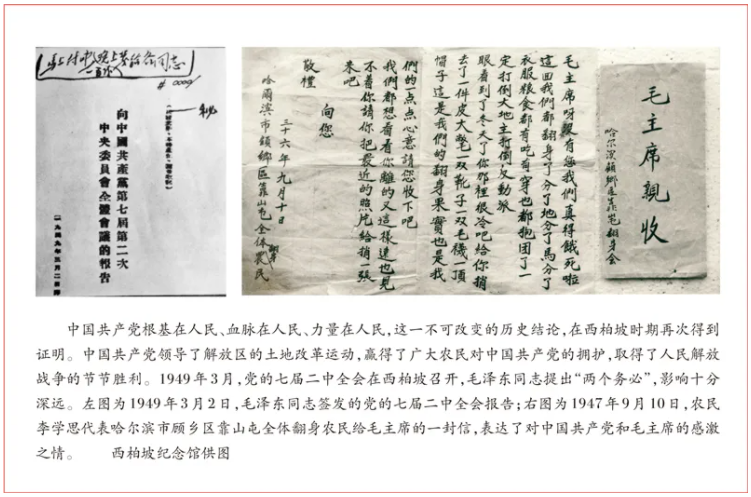 向中國共產黨第七屆第二次
中央委員會全體會議的報告
毛主席親收
毛主席呀沒有您我們真得餓死啦
這回我們都翻身了分了地分了馬分了
衣服粮食都有吃有穿也都抱团了一
定打倒大地主打倒反动派
眼看到了冬天了你那裡很冷吧給你捎
去了一件皮大氅一双靴子一双毛襪一頂
帽子這是我們的翻身果實也是我
們的一点点心意請您收下吧
我們都想看看你離的又這樣远也見
不着你請你把最近的照片給捎一張
来吧
向您
敬禮
三十六年九月十日
哈爾滨市顧鄉區靠山屯全体翻身農民
中国共产党根基在人民、血脉在人民、力量在人民，这一不可改变的历史结论，在西柏坡时期再次得到
证明。中国共产党领导了解放区的土地改革运动，赢得了广大农民对中国共产党的拥护，取得了人民解放
战争的节节胜利。1949年3月，党的七届二中全会在西柏坡召开，毛泽东同志提出“两个务必”，影响十分
深远。左图为1949年3月2日，毛泽东同志签发的党的七届二中全会报告；右图为1947年9月10日，农民
李学思代表哈尔滨市顾乡区靠山屯全体翻身农民给毛主席的一封信，表达了对中国共产党和毛主席的感激
之情。 西柏坡纪念馆供图